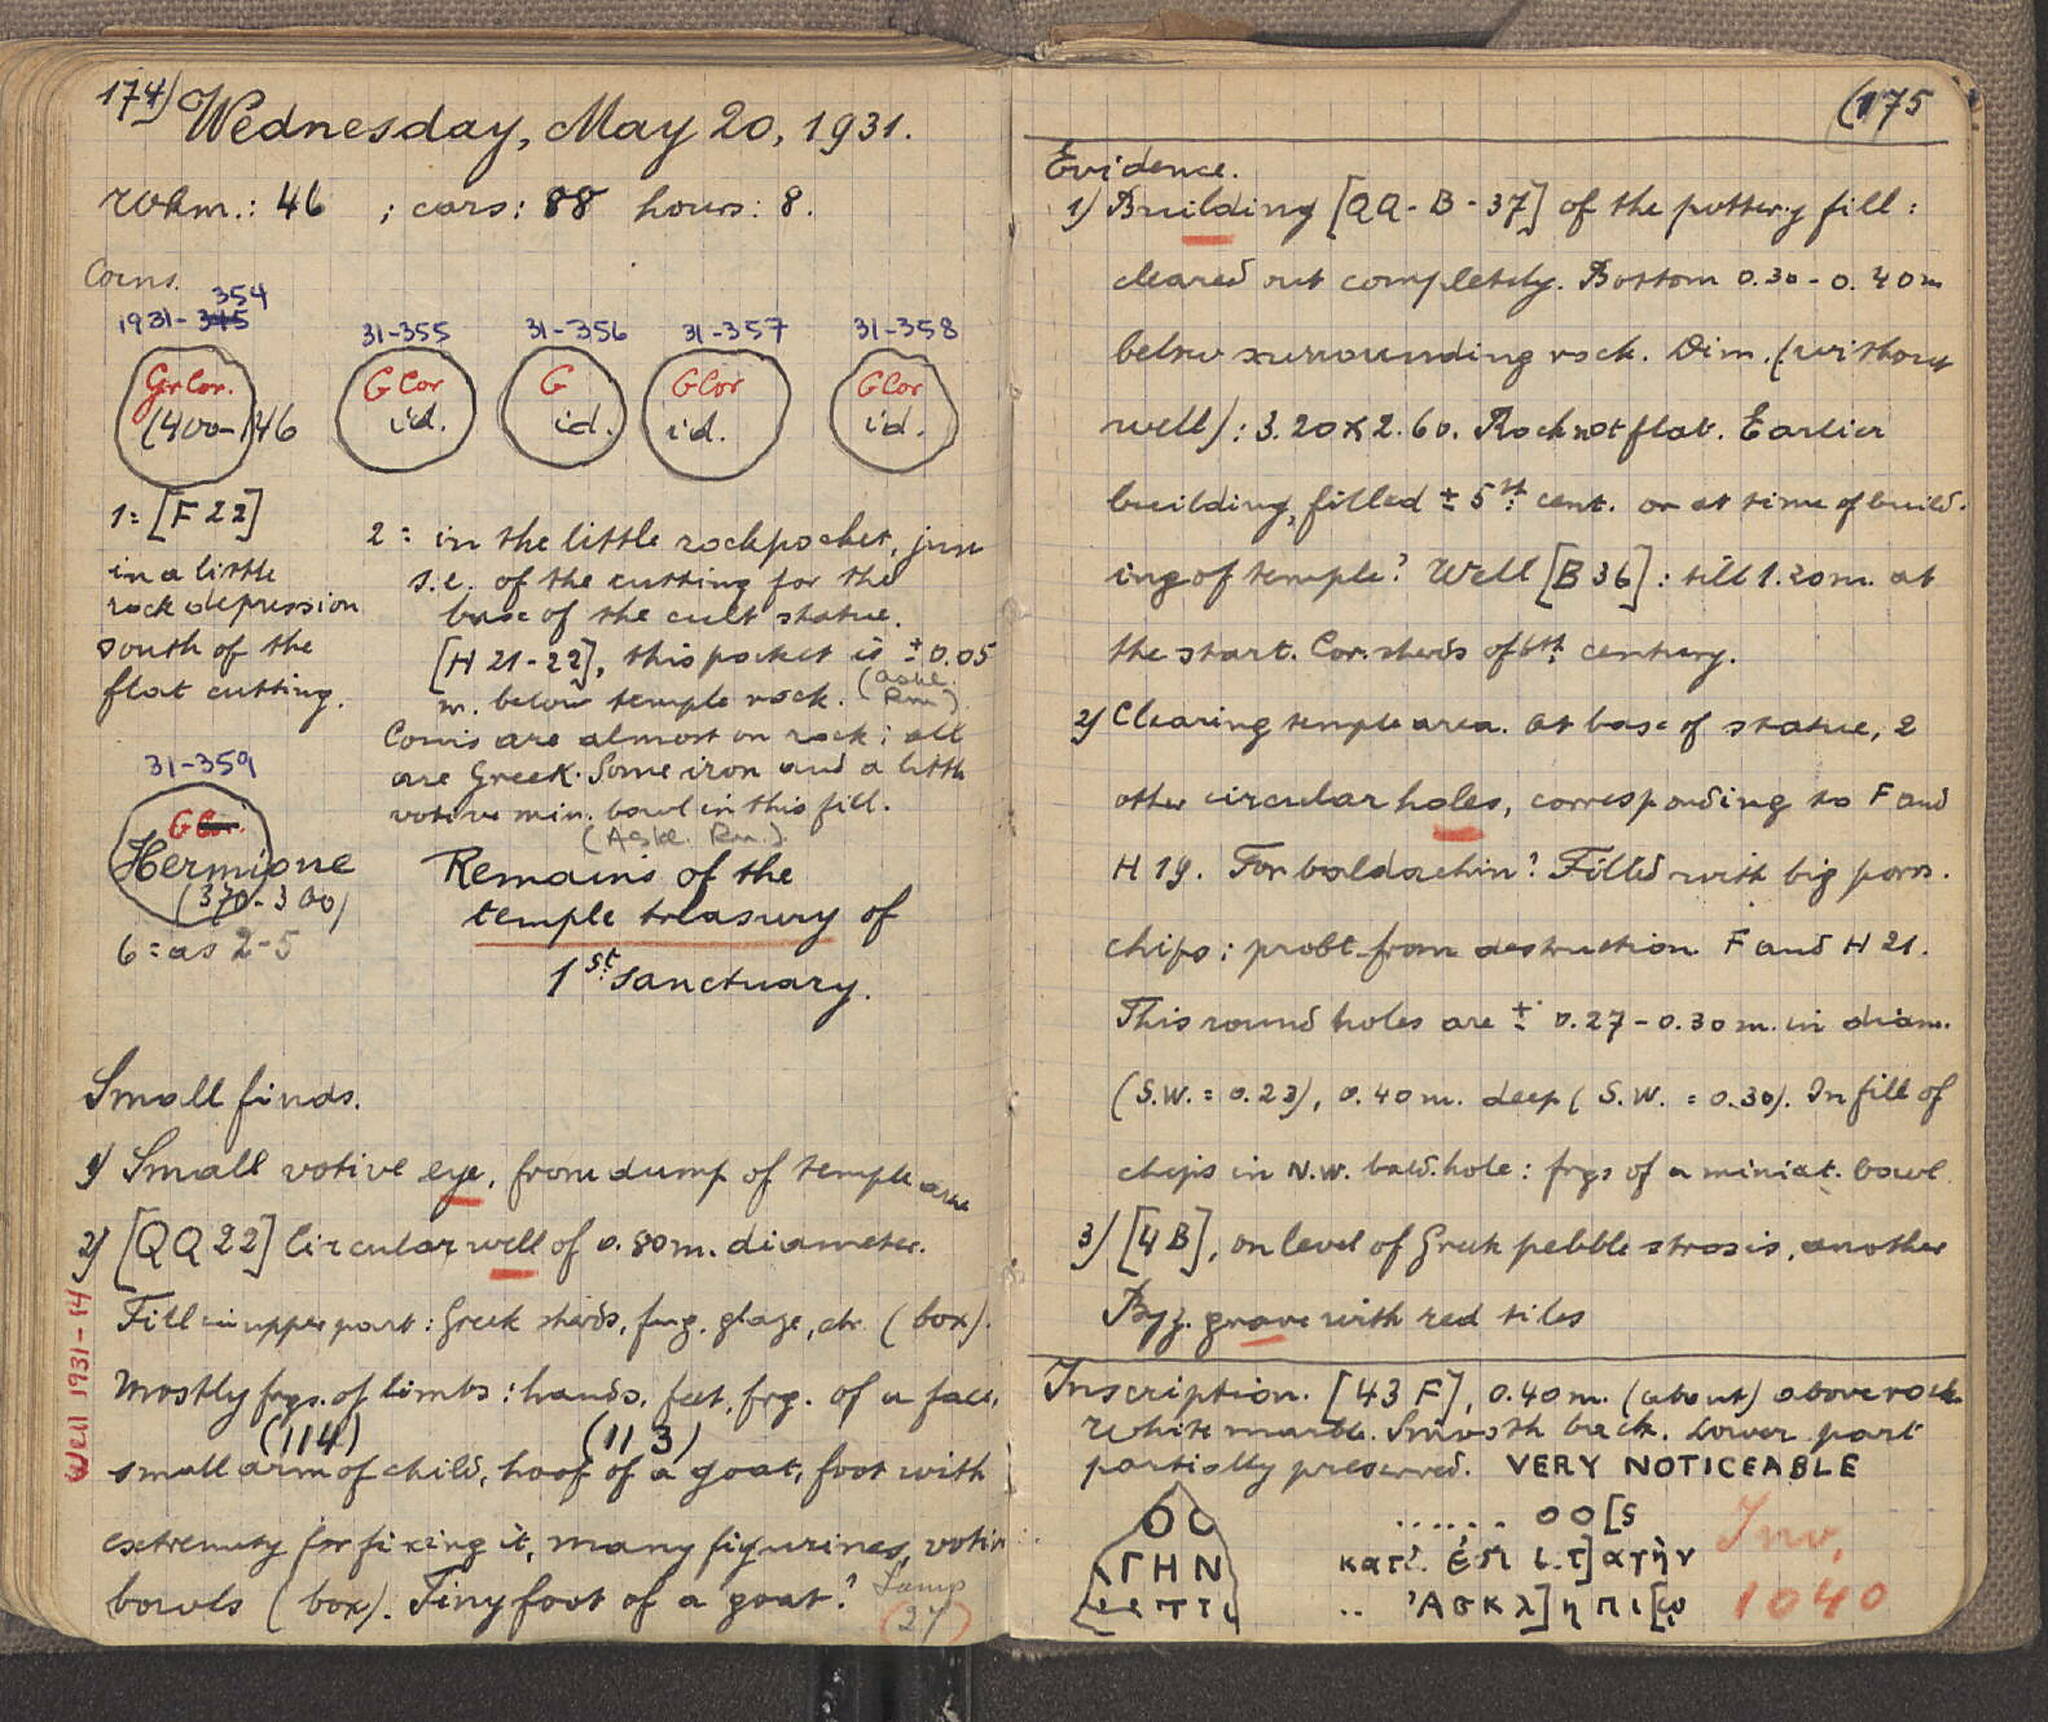 174)
Wednesday, May 20, 1931.
Wkm.: 46 ; cars: 88 hours: 8.
Coins.
354
1931-345
31-355
31-356
31-357
31-358
GrCor.
(400-146
G Cor
id.
G
id.
GCor
id.
GCor
id.
1= [F 22]
in a little
rock depression
south of the
flat cutting.
2 = in the little rockpocket, just
s.e. of the cutting for the
base of the cult statue.
[H 21-22], this pocket is ± 0.05
m. below temple rock. (Askl. Rm.)
Coins are almost on rock; all
are Greek. Some iron and a little
votive min. bowl in this fill.
(Askl. Rm.)
31-359
G Cor.
Hermione
(370-300)
6 = as 2-5
Remains of the
temple treasury of
1st sanctuary.
Small finds.
1) Small votive eye, from dump of temple area
2) [QQ22] Circular well of 0.80m. diameter.
Fill in upper part: Greek sherds, frg. glaze, etc. (box).
Mostly frgs. of limbs: hands, feet, frg. of a face,
(114) (113)
small arm of child, hoof of a goat, foot with
extremity for fixing it, many figurines, votive
bowls (box). Tiny foot of a goat?
Lamp
(27)
Well 1931-14
(175
Evidence.
1) Building [QQ-B-37] of the pottery fill:
cleared out completely. Bottom 0.30-0.40m
below surrounding rock. Dim. (without
well): 3.20x2.60. Rock not flat. Earlier
building, filled ± 5st cent. or at time of build-
ing of temple? Well [B36]: till 1.20m. at
the start. Cor. sherds of 6th century.
2) Clearing temple area. At base of statue, 2
other circular holes, corresponding to F and
H 19. For baldachin? Filled with big poros.
chips; probl. from destruction F and H 21.
This round holes are ± 0.27-0.30m. in diam.
(S.W. = 0.23), 0.40m. deep (S.W. = 0.30). In fill of
chips in N.W. bald. hole: frgs of a miniat. bowl
3) [4B], on level of Greek pebble strosis, another
Byz. grave with red tiles
Inscription. [43 F], 0.40m. (about) above rock.
White marble. Smooth back. Lower part
partially preserved. VERY NOTICEABLE
ΟC
ΓΗΝ
...... οο[ς
κατὰ ἐπιτ]αγὴν
.. Ἀσκλ]ηπι[ῷ
Inv.
1040